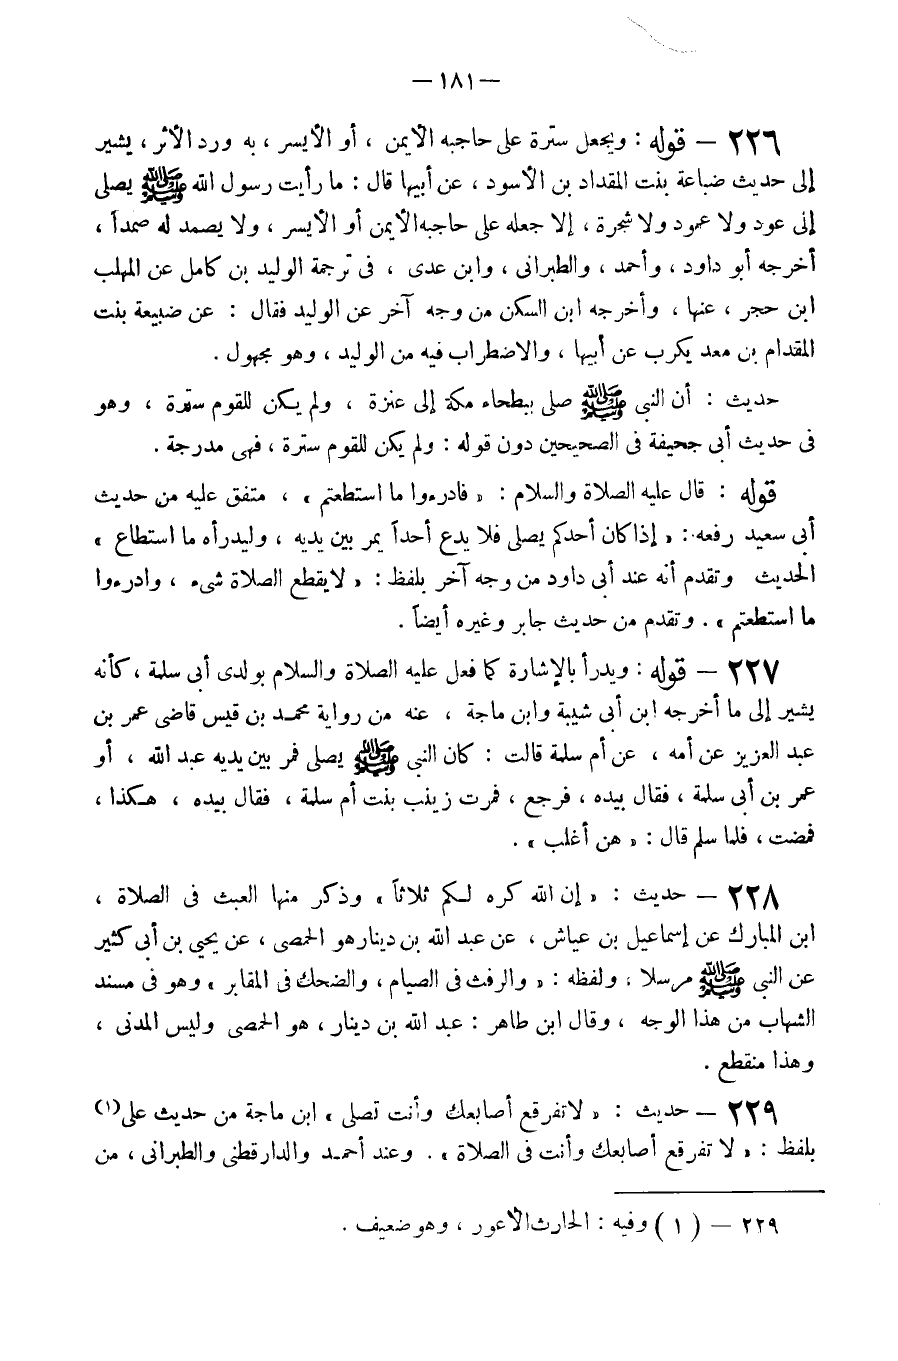 — ١٨١ —
٢٢٦ — قوله : ويجعل سترة على حاجبه الأيمن ، أو الأيسر ، به ورد الأثر ، يشير
إلى حديث ضباعة بنت المقداد بن الأسود ، عن أبيها قال : ما رأيت رسول الله ﷺ يصلى
إلى عود ولا عمود ولا شجرة ، إلا جعله على حاجبه الأيمن أو الأيسر ، ولا يصمد له صمداً ،
أخرجه أبو داود ، وأحمد ، والطبرانى ، وابن عدى ، فى ترجمة الوليد بن كامل عن المهلب
ابن حجر ، عنها ، وأخرجه ابن السكن من وجه آخر عن الوليد فقال : عن ضبيعة بنت
المقدام بن معد يكرب عن أبيها ، والاضطراب فيه من الوليد ، وهو مجهول .
حديث : أن النبى ﷺ صلى ببطحاء مكة إلى عنزة ، ولم يكن للقوم سترة ، وهو
فى حديث أبى جحيفة فى الصحيحين دون قوله : ولم يكن للقوم سترة ، فهى مدرجة .
قوله : قال عليه الصلاة والسلام : « فادرءوا ما استطعتم » ، متفق عليه من حديث
أبى سعيد رفعه : « إذا كان أحدكم يصلى فلا يدع أحداً يمر بين يديه ، وليدرأه ما استطاع »
الحديث وتقدم أنه عند أبى داود من وجه آخر بلفظ : « لا يقطع الصلاة شىء ، وادرءوا
ما استطعتم » . وتقدم من حديث جابر وغيره أيضاً .
٢٢٧ — قوله : ويدرأ بالإشارة كما فعل عليه الصلاة والسلام بولدى أبى سلمة ، كأنه
يشير إلى ما أخرجه ابن أبى شيبة وابن ماجة ، عنه من رواية محمد بن قيس قاضى عمر بن
عبد العزيز عن أمه ، عن أم سلمة قالت : كان النبى ﷺ يصلى فمر بين يديه عبد الله ، أو
عمر بن أبى سلمة ، فقال بيده ، فرجع ، فمرت زينب بنت أم سلمة ، فقال بيده ، هكذا ،
فمضت ، فلما سلم قال : « هن أغلب » .
٢٢٨ — حديث : « إن الله كره لكم ثلاثاً » وذكر منها العبث فى الصلاة ،
ابن المبارك عن إسماعيل بن عياش ، عن عبد الله بن دينار هو الحمصى ، عن يحيى بن أبى كثير
عن النبى ﷺ مرسلا ، ولفظه : « والرفث فى الصيام ، والضحك فى المقابر » وهو فى مسند
الشهاب من هذا الوجه ، وقال ابن طاهر : عبد الله بن دينار ، هو الحمصى وليس المدنى ،
وهذا منقطع .
٢٢٩ — حديث : « لا تفرقع أصابعك وأنت تصلى » ابن ماجة من حديث على(١)
بلفظ : « لا تفرقع أصابعك وأنت فى الصلاة » . وعند أحمد والدارقطنى والطبرانى ، من
٢٢٩ — (١) وفيه : الحارث الأعور ، وهو ضعيف .